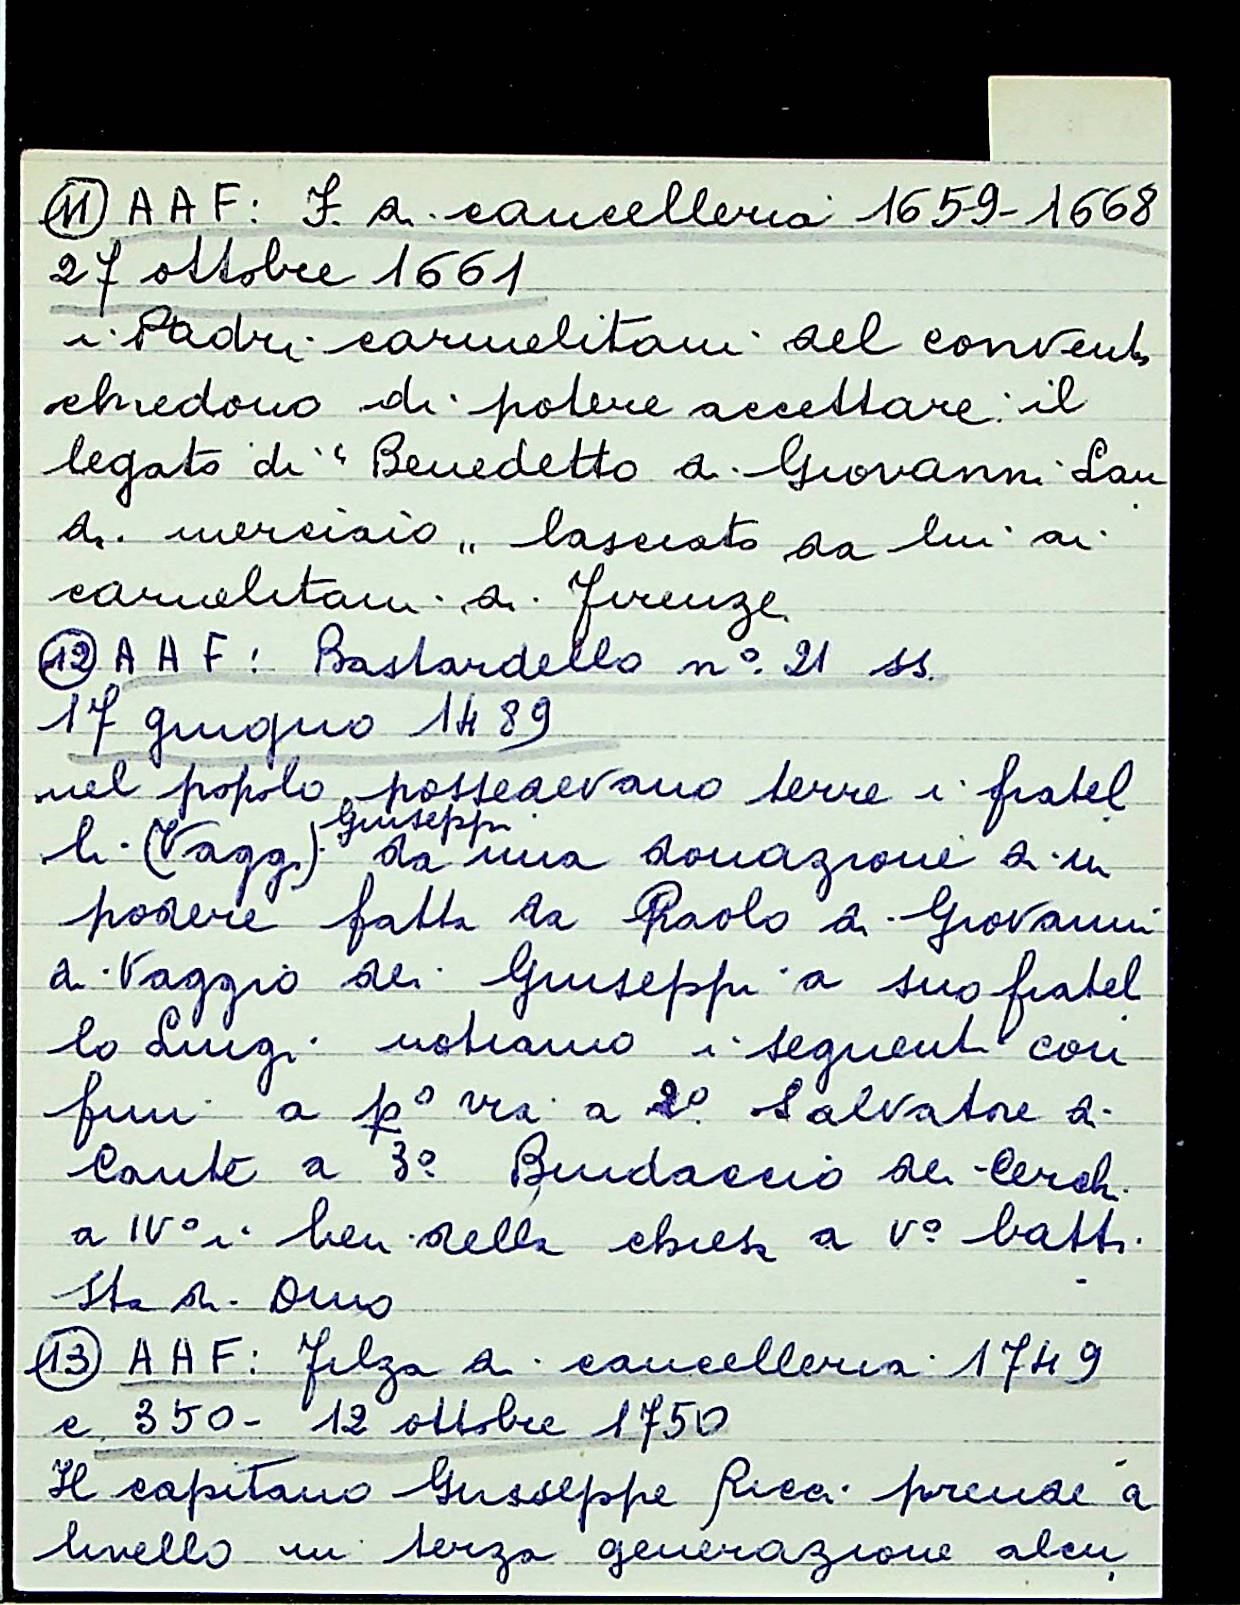 11 AAF: F. di cancelleria 1659-1668
27 ottobre 1661
i Padri carmelitani del convento
chiedono di potere accettare il
legato di " Benedetto di Giovanni Lan
di merciaio „ lasciato da lui ai
carmelitani di Firenze
12 AAF: Bastardello n°. 21 ss.
17 giugno 1489
nel popolo possedevano terre i fratel
li (Vaggi) Giuseppi da una donazione di un
podere fatta da Paolo di Giovanni
di Vaggio dei Giuseppi a suo fratel
lo Luigi notiamo i seguenti con
fini a p° via a 2° Salvatore di
Cante a 3° Bindaccio dei Cerchi
a IV° i beni della chiesa a V° batti
sta di Dino
13 AAF: Filza di cancelleria 1749
c. 350- 12 ottobre 1750
Il capitano Giuseppe Ricci prende a
livello in terza generazione alcu